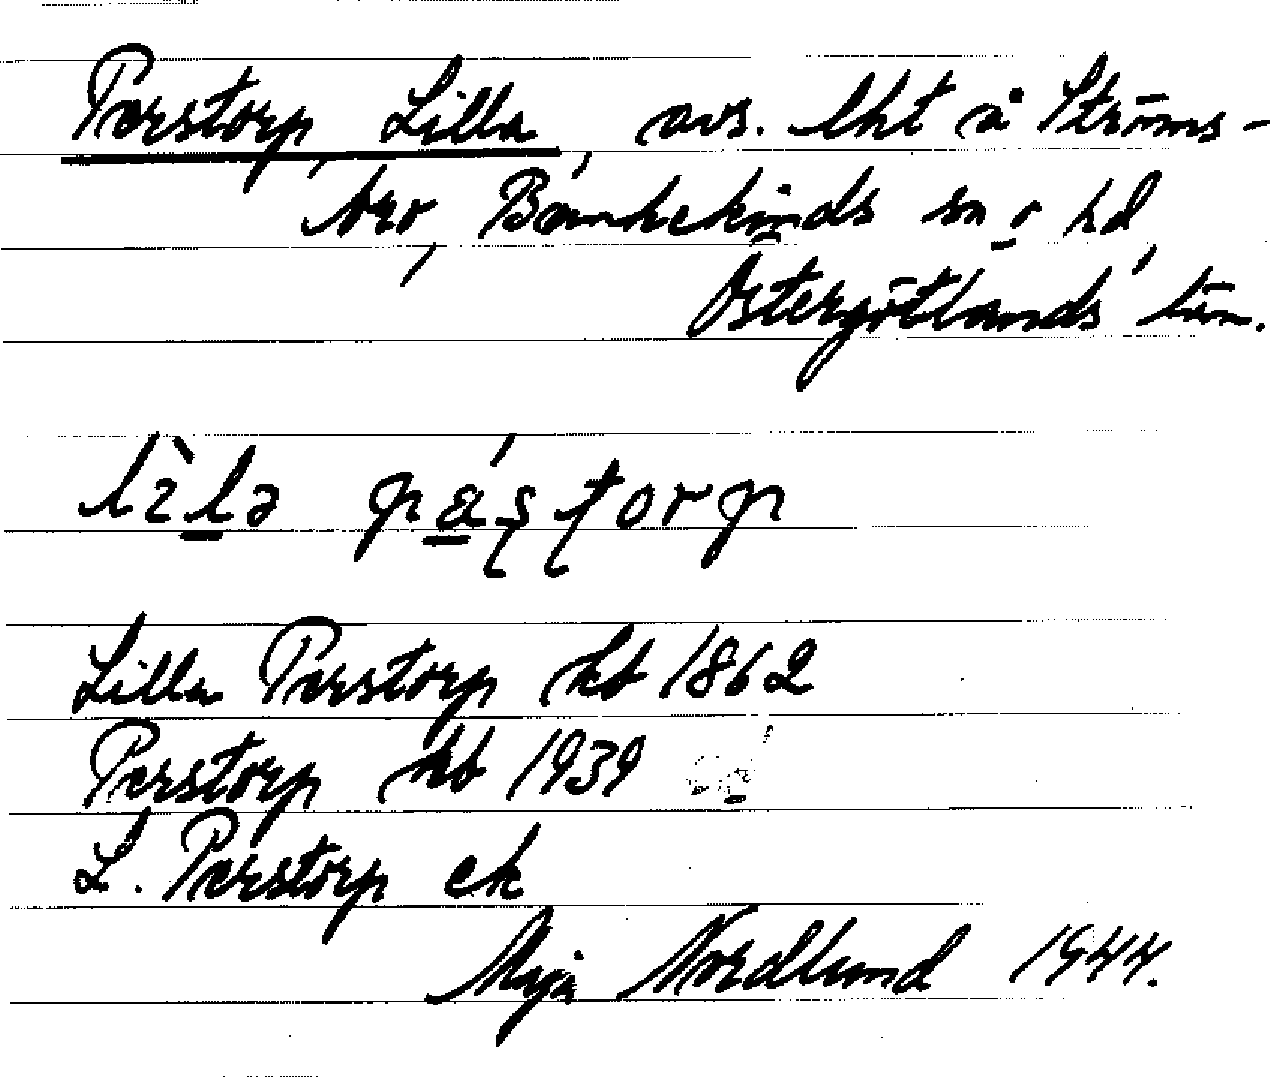 Perstorp, Lilla, avs. lht å Ströms-
bro, Bankekinds sn o hd,
Östergötlands län.
lìla pá̱ṣṭorp
Lilla Perstorp hb 1862
Perstorp kb 1939
L. Perstorp ek
Maja Nordlund 1944.